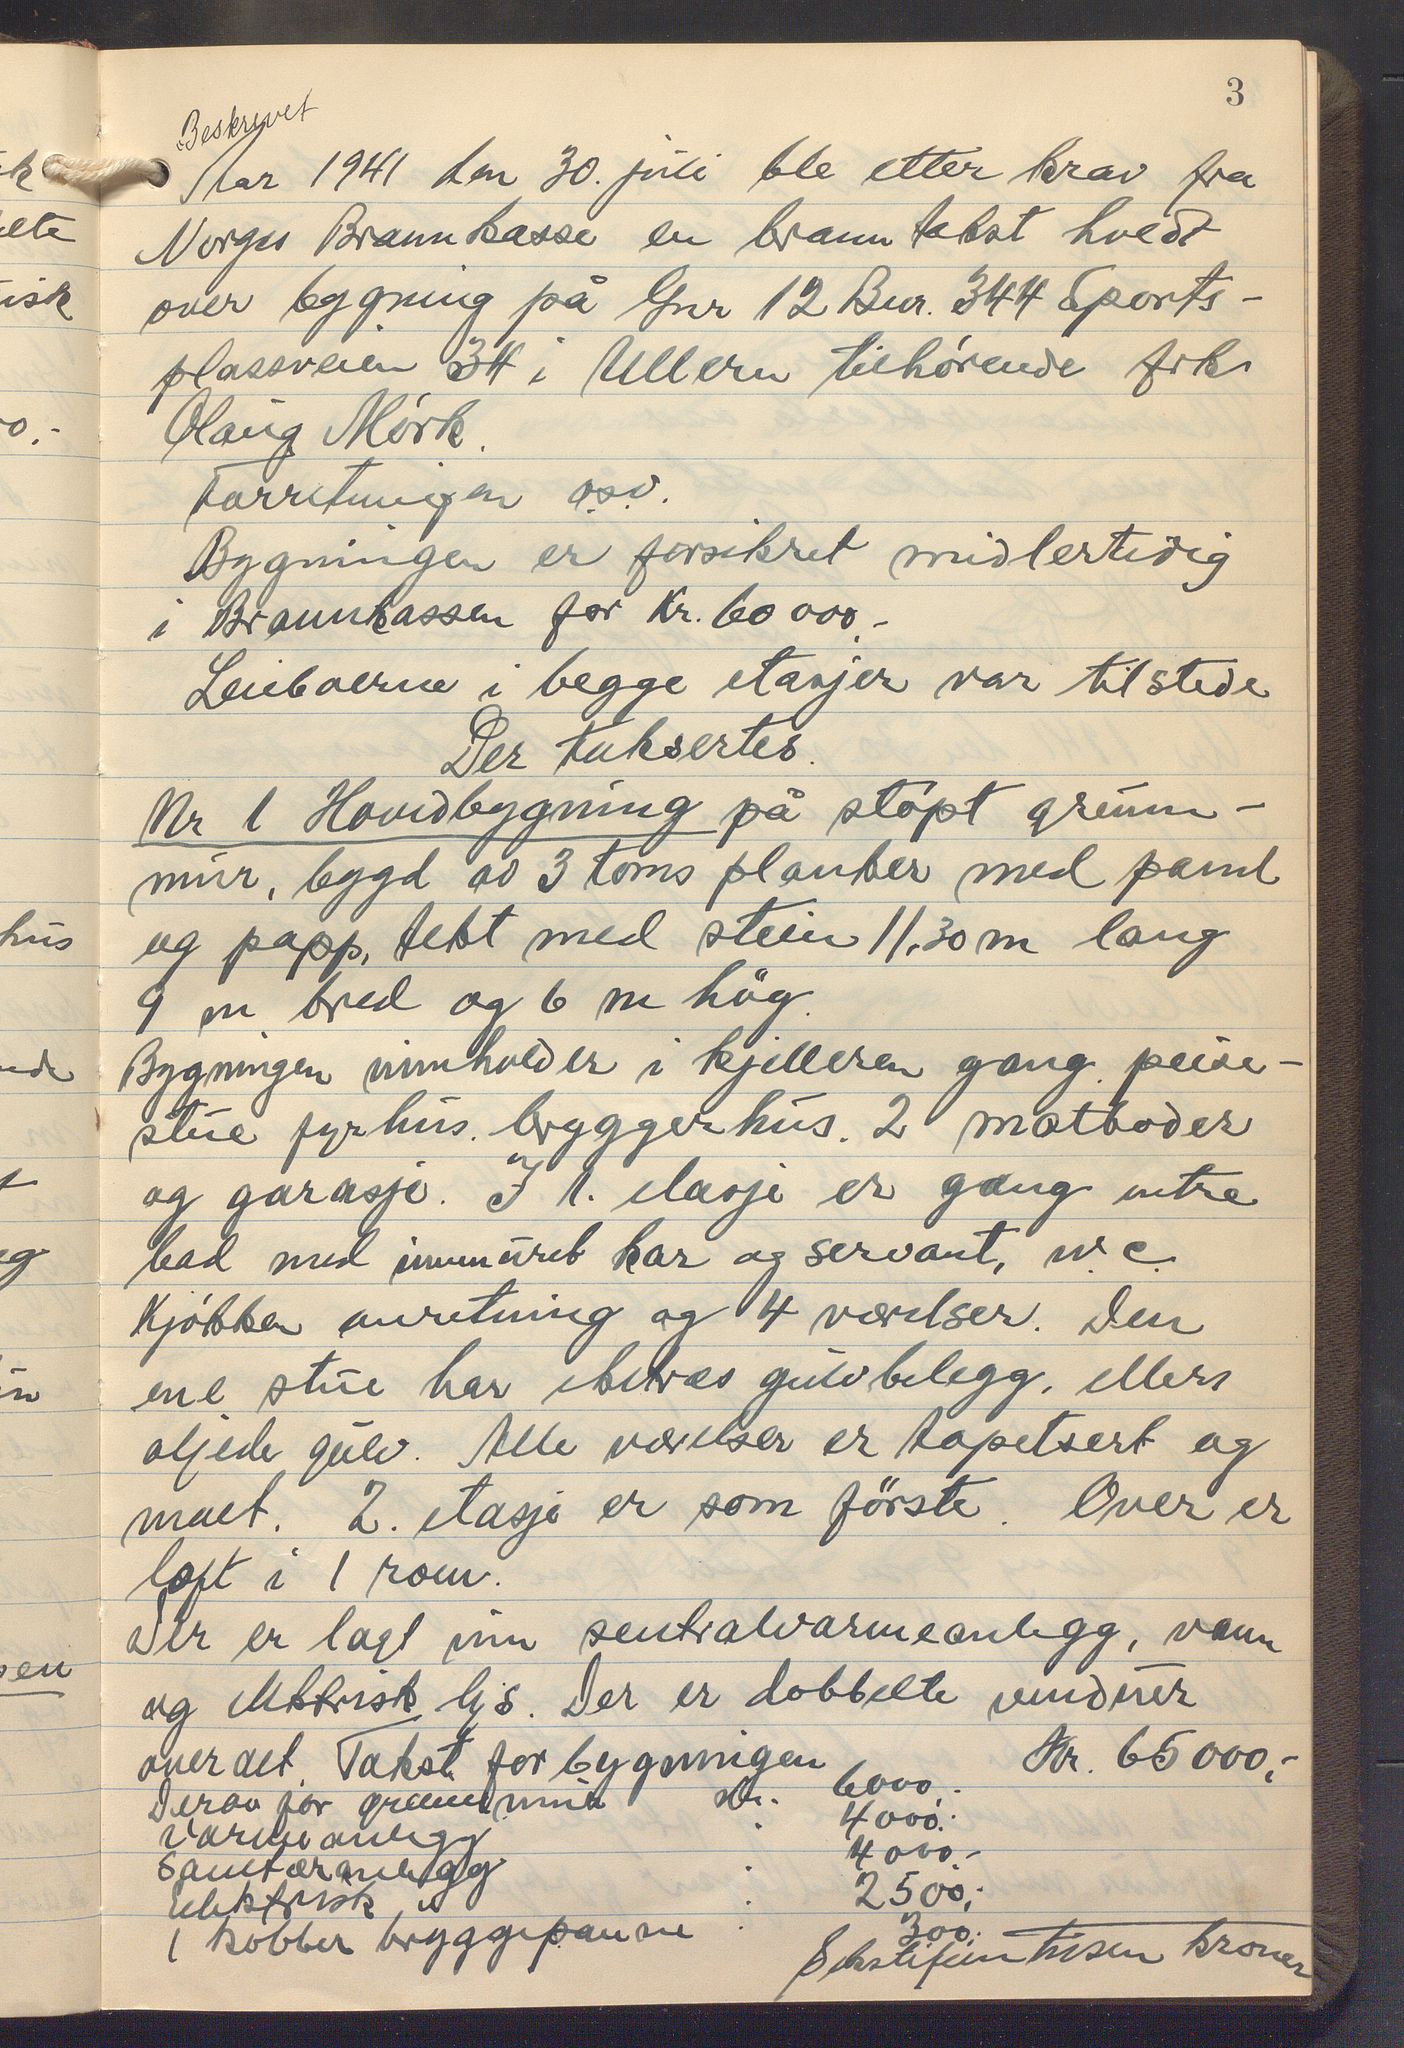 3
Beskrevet
Aar 1941 den 30. juli ble etter krav fra
Norges Brannkasse en branntakst hvedt
over bygning på Gnr 12 Bnr. 344 Sports-
plassveien 34 i Ullern tilhørende frk.
Olaug Mørk.
Forretningen osv.
Bygningen er forsikret midlertidig
i Brannkassen for Kr. 60 000.-
Leieboerne i begge etasjer var tilstede
Der taksertes.
Nr 1 Hovedbygning på støpt grunn-
mur, bygd av 3 toms planker med panel
og papp, tekt med stein 11,30 m lang
9 m bred og 6 m hög.
Bygningen innholder i kjelleren gang. peise-
stue fyrhus. bryggerhus. 2 matboder
og garasje. I 1. etasje er gang entre
bad med innmuret kar og servant, w.c.
Kjøkken anretning og 4 værelser. Den
ene stue har gulvbelegg, ellers
oljede gulv. Alle værelser er tapetsert og
malt. 2. etasje er som förste. Over er
loft i 1 rom.
Der er lagt inn sentralvarmeanlegg, vann
og elektrisk lys. Der er dobbelte vinduer
over alt. Takst for bygningen Kr. 65 000,-
Derav for grunnmur Kr. 6000.-
Varmeanlegg " 4000.-
Sanitæranlegg " 4000.-
Elektrisk " 2500,-
1 kobber bryggepanne " 300.-
Sekstifem tusen kroner